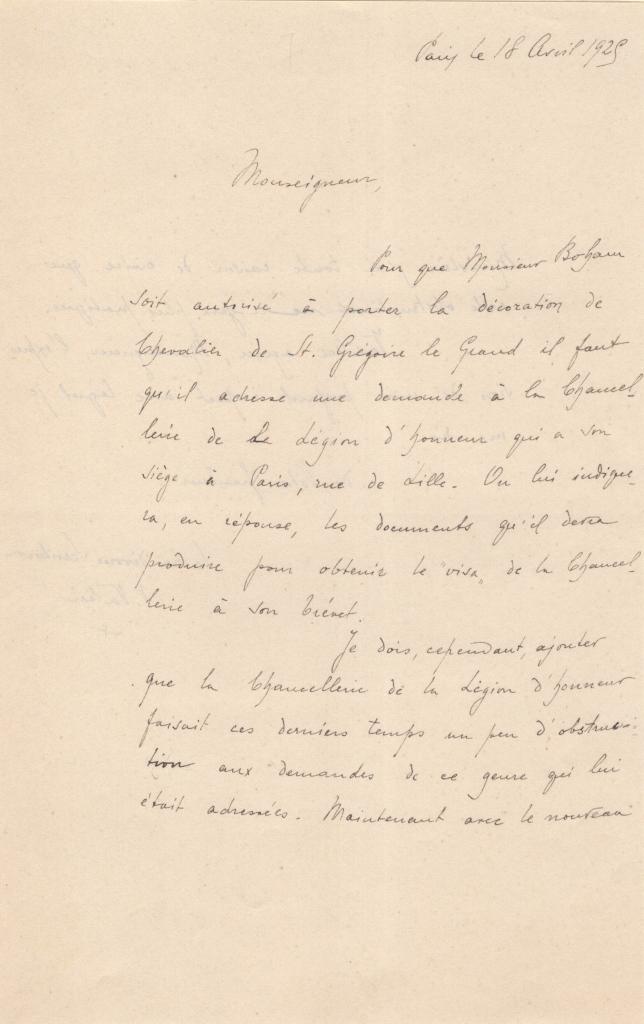 Paris le 18 Avril 1925
Monseigneur,
Pour que Monsieur
soit autorisé à porter la décoration de
Chevalier de St. Grégoire le Grand il faut
qu'il adresse une demande à la Chancel-
lerie de Le Légion d'honneur qui a son
siège à Paris, rue de Lille. On lui indique-
ra, en réponse, les documents qu'il devra
produire pour obtenir le "visa" de la Chancel-
lerie à son brévet.
Je dois, cependant, ajouter
que la Chancellerie de la Légion d'honneur
faisait ces derniers temps un peu d'obstruc-
tion aux demandes de ce genre qui lui
était adressées. Maintenant avec le nouveau